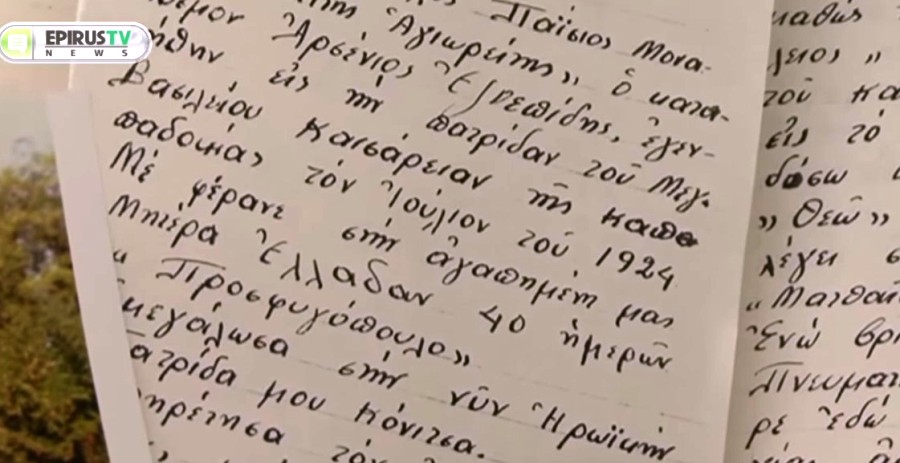 EPIRUSTV
NEWS
Παΐσιος Μονα-
της "Ἁγιωρείτης" ὁ κατα-
Ἀρσένιος Ἐζνεπίδης, ἐγεν-
ήθην εἰς τὴ πατρίδαν τοῦ Μεγ.
Βασιλείου Καισάρειαν τῆς Καπα
παδοκίας τὸν Ἰούλιον τοῦ 1924
Μὲ φέρανε στὴν ἀγαπημένη μας
Μητέρα Ἑλλάδαν 40 ἡμερῶν
" Προσφυγόπουλο"
μεγάλωσα στὴν νῦν Ἡρωϊκὴν
ατρίδα μου Κόνιτσα.
ηρέτησα
καθὼς
λειος "
τοῦ κα
εἰς τὸ
δώσω
" Θεῶ"
λέγει σ
" Ματθαί
Ἐνῶ βρι
Πνευματ
ρε ἐδώ